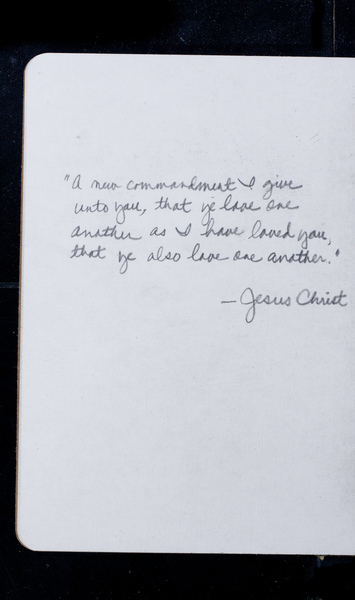 "A new commandment I give
unto you, that ye love one
another as I have loved you,
that ye also love one another."
—Jesus Christ